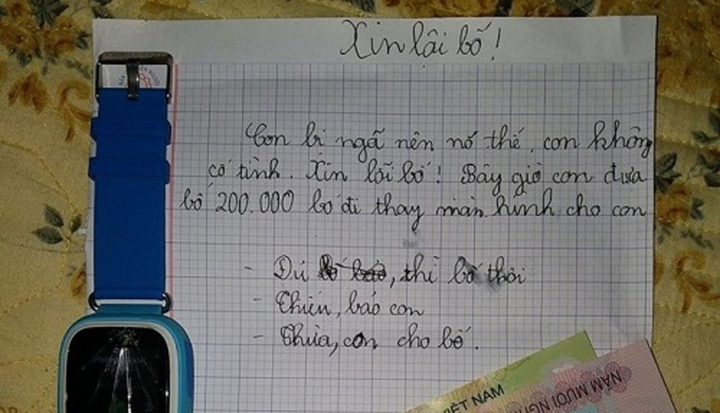 Xin lỗi bố!
Con bị ngã nên nó thế, con không
cố tình. Xin lỗi bố! Bây giờ con đưa
bố 200.000 bố đi thay màn hình cho con
- Dư, thì bố thối
- Thiếu, bảo con
- Thừa, con cho bố.
VIỆT NAM
NĂM MƯƠI NG